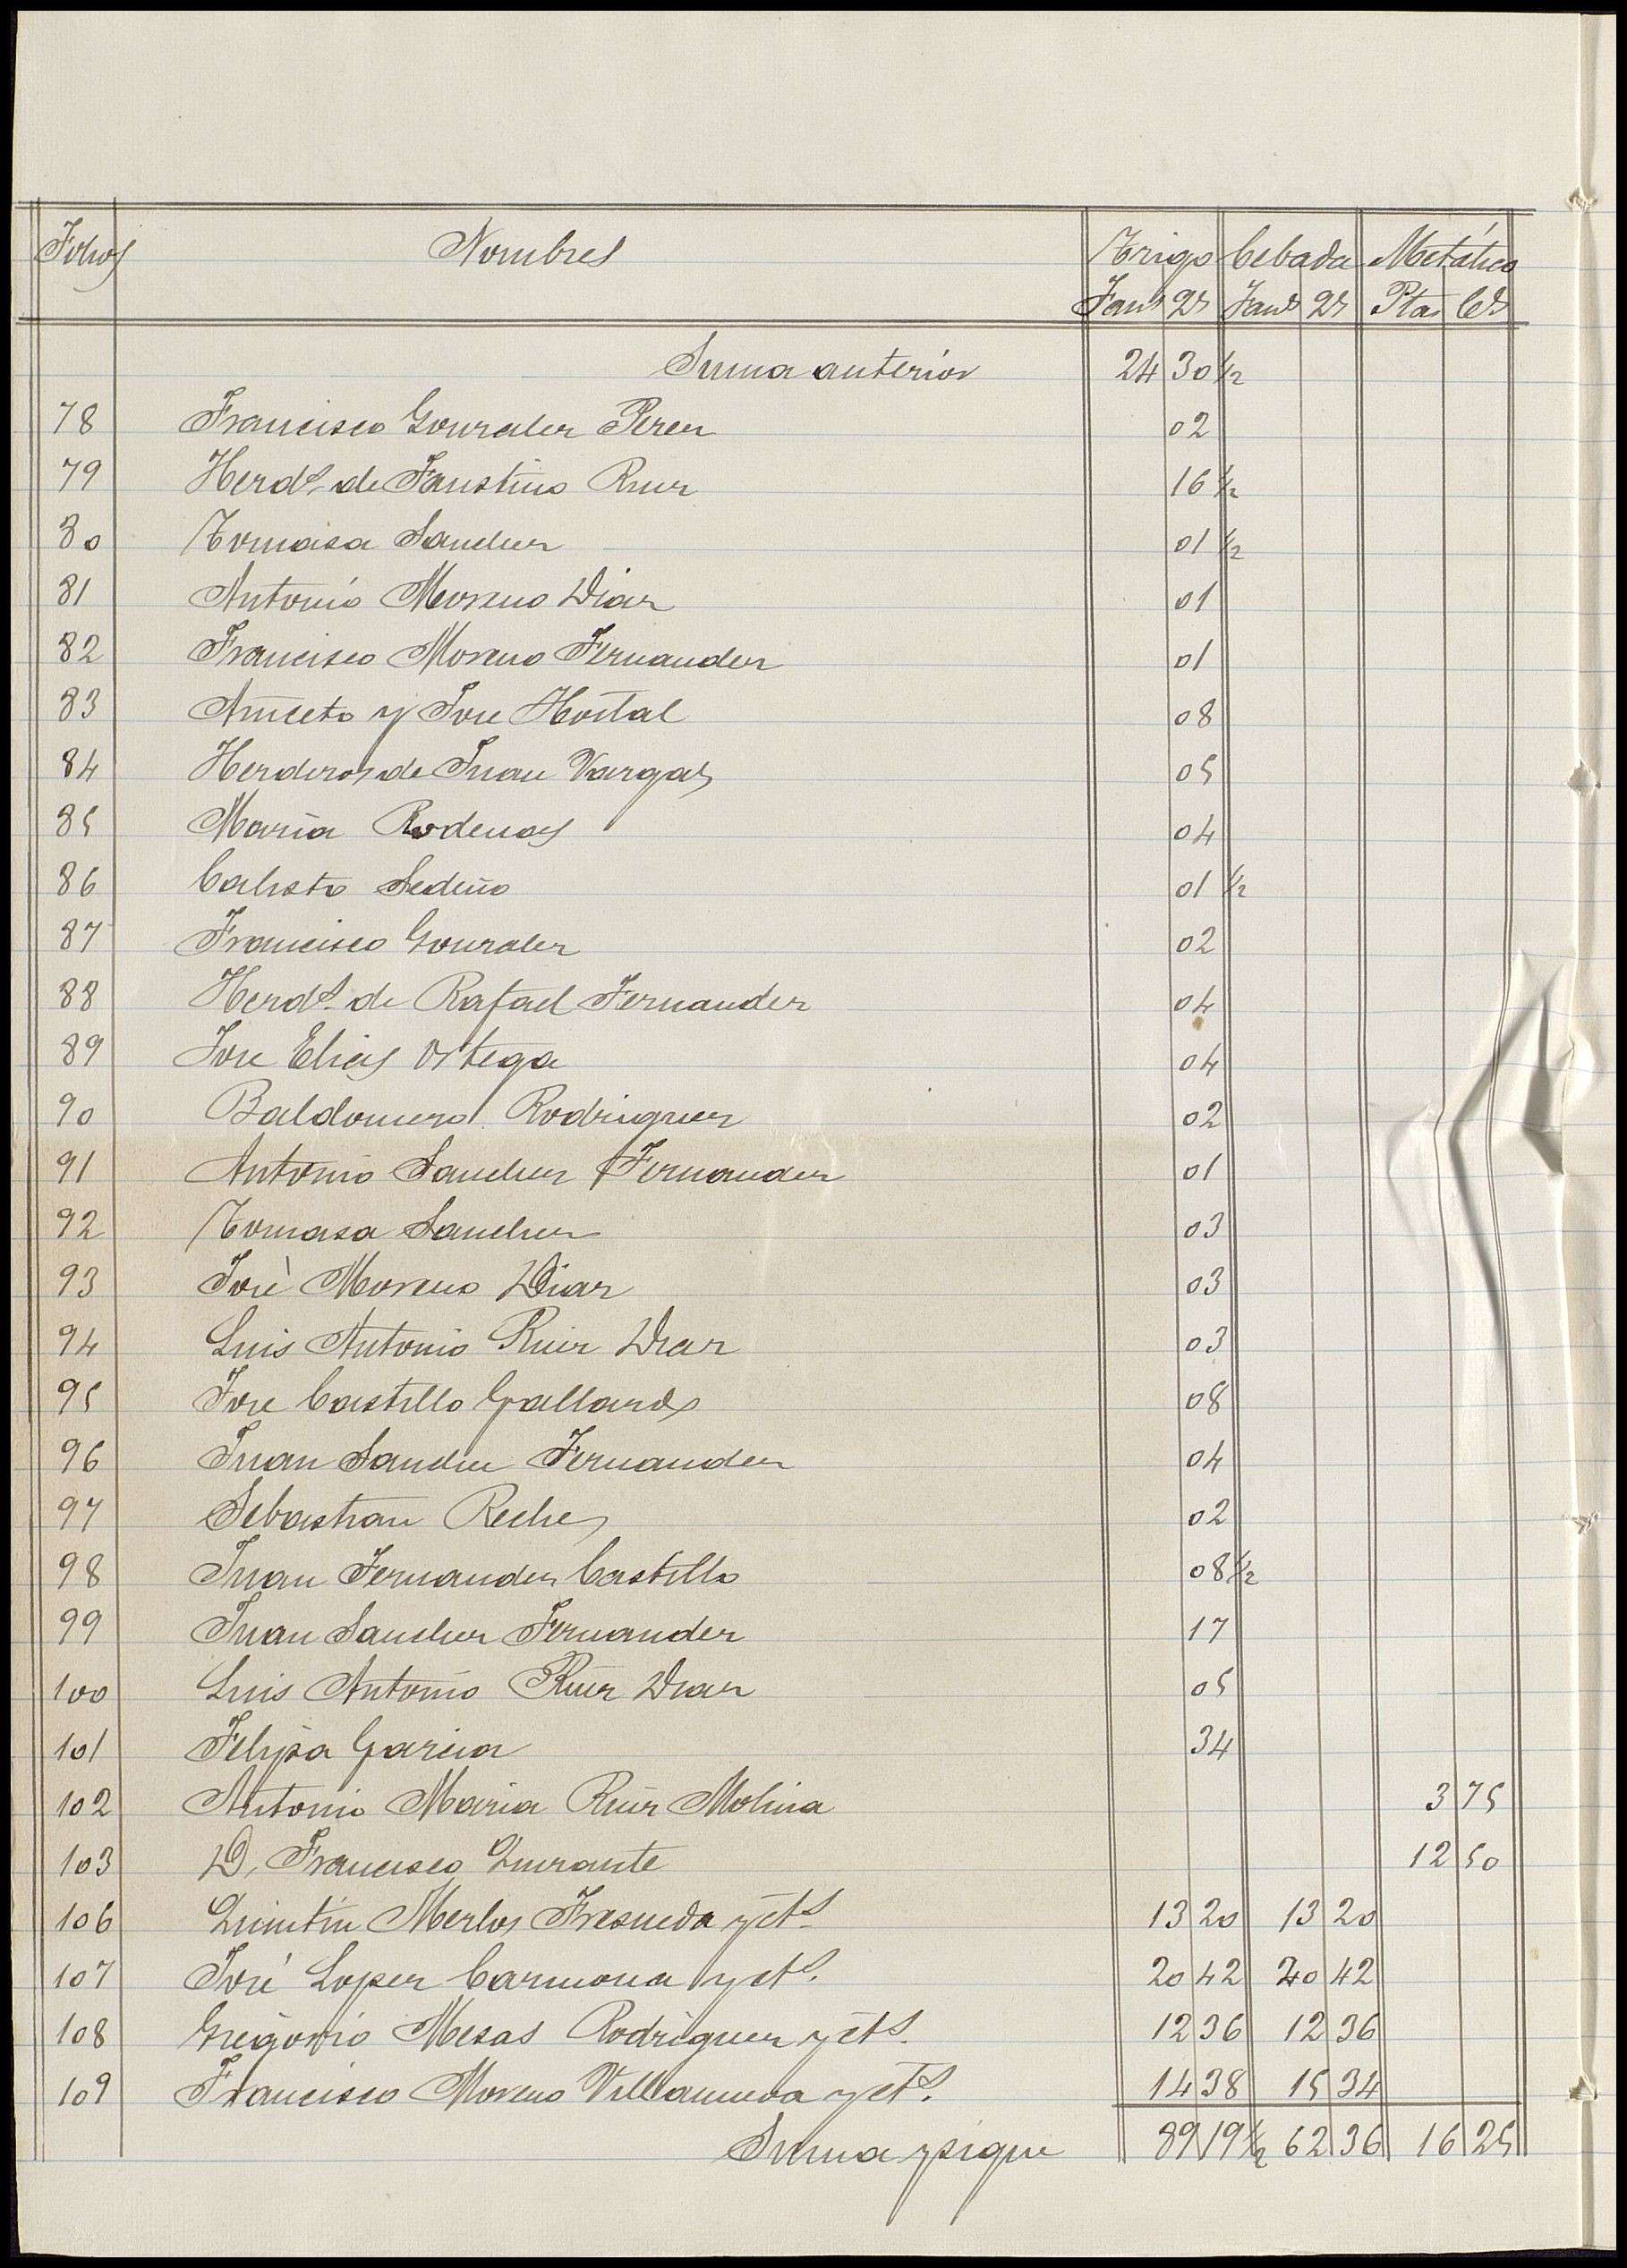 Folios Nombres Trigo Cebada Metálico
Fans Qs Fans Qs Ptas Cs
Suma anterior 24 30 1/2
78 Francisco Gonzalez Perez 02
79 Herds. de Faustino Ruiz 16 1/2
80 Tomasa Sanchez 01 1/2
81 Antonio Moreno Diaz 01
82 Francisco Moreno Fernandez 01
83 Aniceto y Jose Hortal 08
84 Herderos de Juan Vargas 05
85 Maria Rodenas 04
86 Calisto Sedeño 01 1/2
87 Francisco Gonzalez 02
88 Herds. de Rafael Fernandez 04
89 Jose Elias Ortega 04
90 Baldomero Rodriguez 02
91 Antonio Sanchez Fernandez 01
92 Tomasa Sanchez 03
93 José Moreno Diaz 03
94 Luis Antonio Ruiz Diaz 03
95 Jose Castillo Gallardo 08
96 Juan Sanchez Fernandez 04
97 Sebastian Reche 02
98 Juan Fernandez Castillo 08 1/2
99 Juan Sanchez Fernandez 17
100 Luis Antonio Ruiz Diaz 05
101 Felipa Garcia 34
102 Antonio Maria Ruiz Molina 3 75
103 D. Francisco Quirante 12 50
106 Quintin Merlos Fresneda y cts. 13 20 13 20
107 José Lopez Carmona y cts. 20 42 20 42
108 Gregorio Mesas Rodriguez y cts. 12 36 12 36
109 Francisco Moreno Villanueva y cts. 14 38 15 34
Suma y sigue 89 19 1/2 62 36 16 25